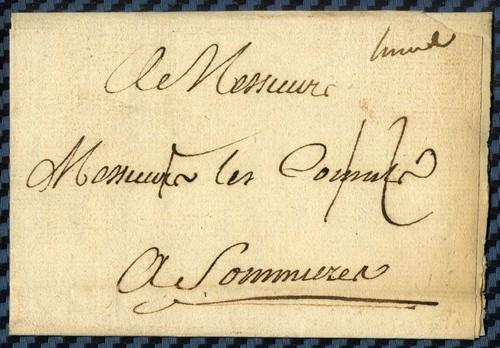 lunel
A Messieurs
Messieurs les Consuls
A Sommieres